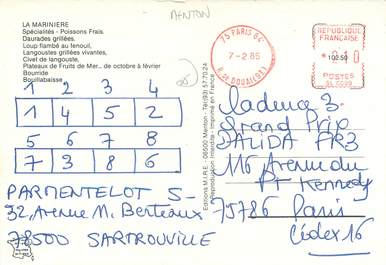 MENTON
LA MARINIERE
Spécialités - Poissons Frais.
Daurades grillées,
Loup flambé au fenouil,
Langoustes grillées vivantes,
Civet de langouste,
Plateaux de Fruits de Mer... de octobre à février
Bourride
Bouillabaisse
1 2 3 4
1 4 5 2
5 6 7 8
7 3 8 6
PARMENTELOT S-
32, Avenue M. Berteaux
78500 SARTROUVILLE
Editions M.I.R.E. - 06500 Menton - Tél.(93) 57.70.24
Reproduction Interdite - Imprimé en France
75 PARIS 84
7-2 85
R. de DOUAI (9E)
REPUBLIQUE
FRANCAISE
102.50
POSTES
Cadence 3
Grand Prix
DALIDA FR3
116 Avenue du
Pt Kennedy
75786 Paris
Cédex 16